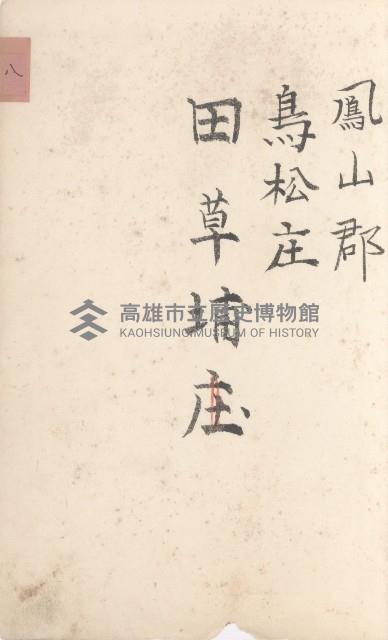 鳳山郡
鳥松庄
田草埔庄
八
高雄市立歷史博物館
KAOHSIUNG MUSEUM OF HISTORY